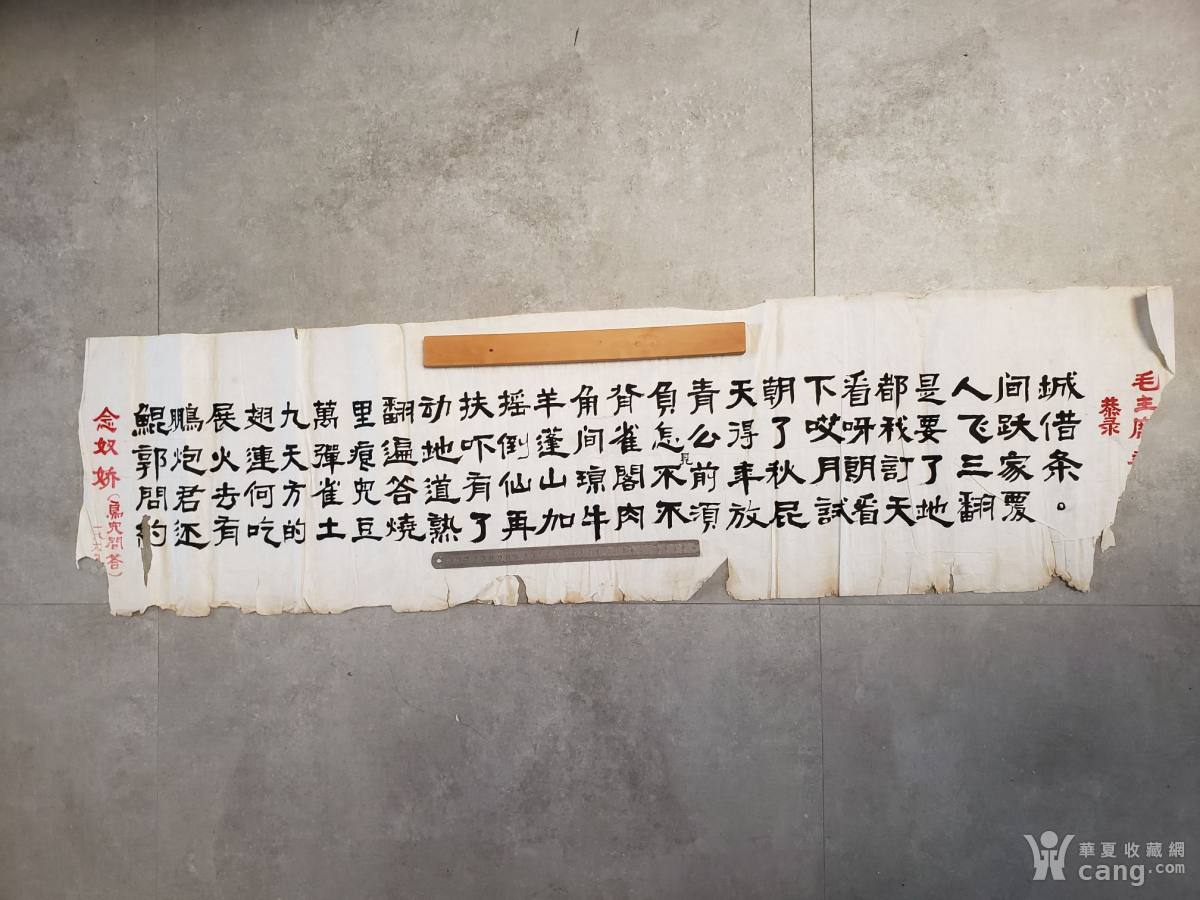 念奴娇（鳥兒問答）
一九六
鯤鵬展翅九萬里翻动扶摇羊角背負青天朝下看都是人间城
郭炮火連天彈痕遍地吓倒蓬间雀怎公得了哎呀我要飞跃借
問君去何方雀兒答道有仙山琼閣不見前年秋月朗訂了三家条
約还有吃的土豆燒熟了再加牛肉不須放屁試看天地翻覆。
毛主席
恭录
華夏收藏網
cang.com